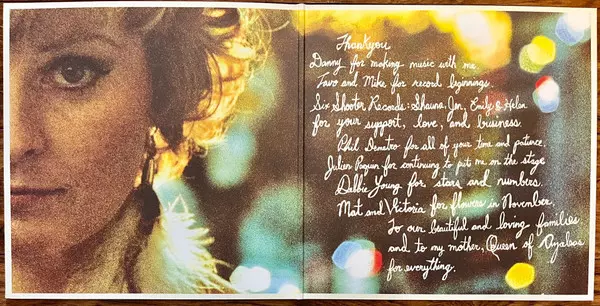 Thankyou
Danny for making music with me
Tavo and Mike for record beginnings.
Six Shooter Records: Shauna, Jen, Emily & Helen
for your support, love, and business.
Phil Demetro for all of your time and patience.
Julien Paquin for continuing to put me on the stage
Debbie Young for stars and numbers.
Mat and Victoria for flowers in November.
To our beautiful and loving families
and to my mother, Queen of Azaleas
for everything.